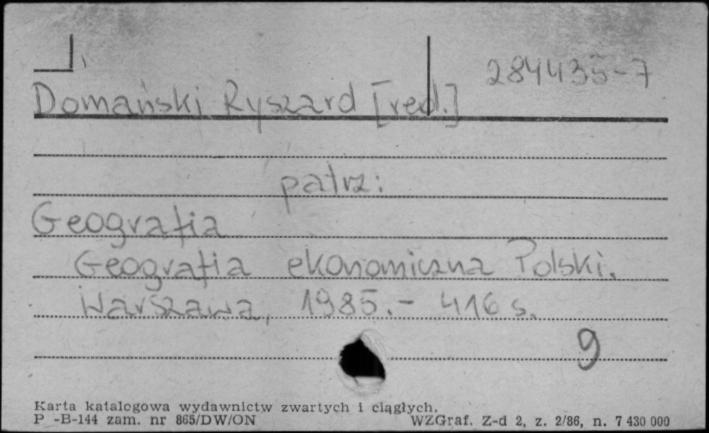 284435-7
Domański Ryszard [red.]
patrz:
Geografia
Geografia ekonomiczna Polski.
Warszawa, 1985.- 416 s.
9
Karta katalogowa wydawnictw zwartych i ciągłych.
P -B-144 zam. nr 865/DW/ON WZGraf. Z-d 2, z. 2/86, n. 7 430 000